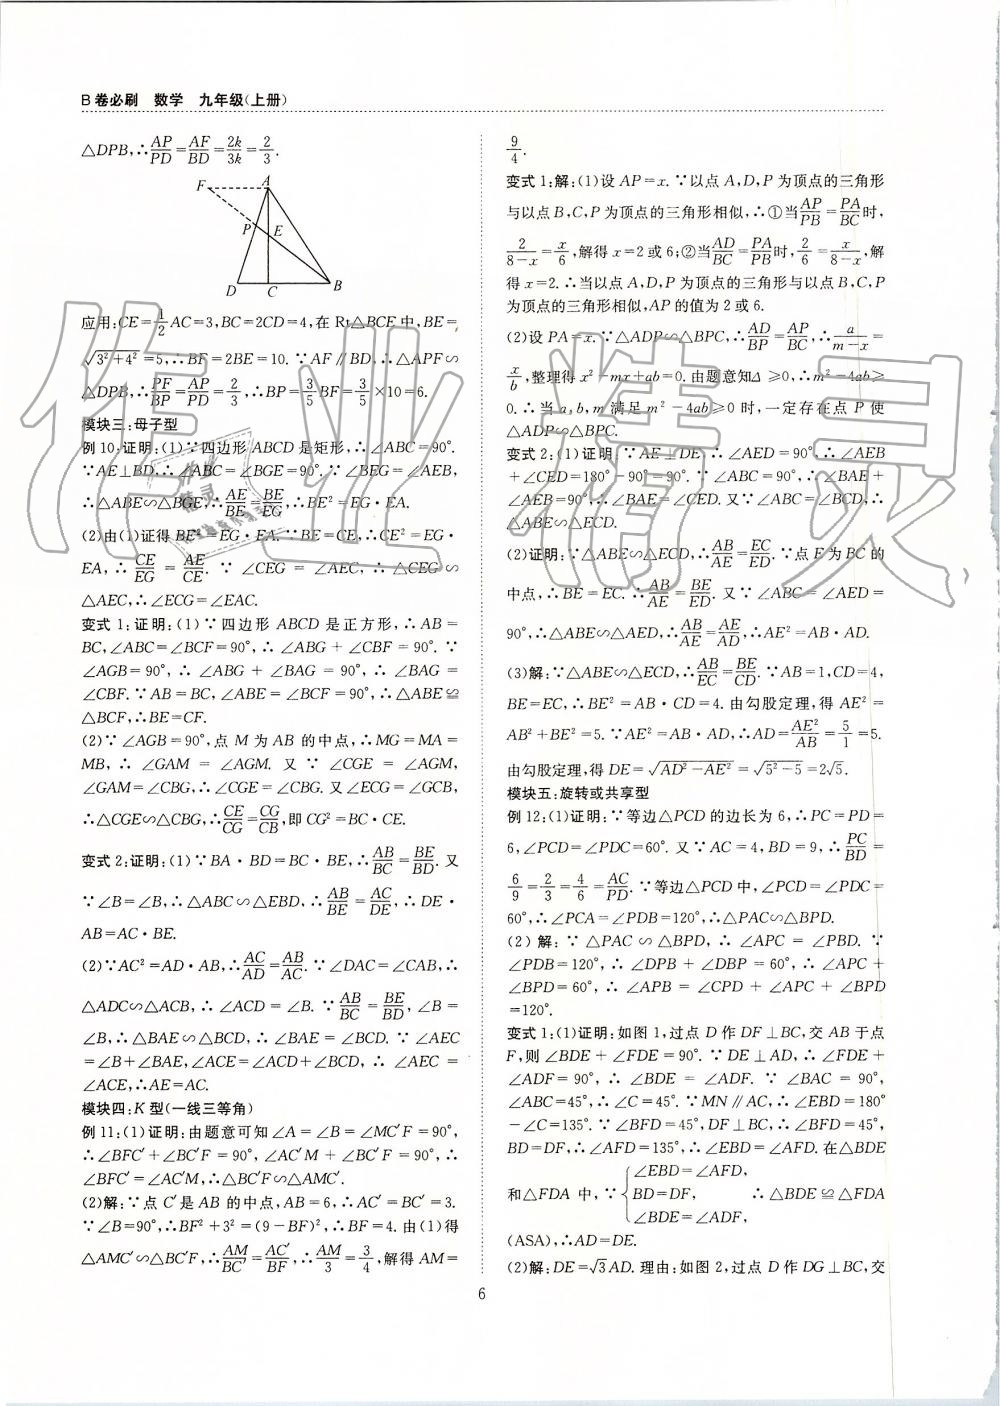 B卷必刷 数学 九年级(上册)
△DPB,∴AP/PD=AF/BD=2k/3k=2/3.
F A
P E
D C B
应用:CE=1/2AC=3,BC=2CD=4,在Rt△BCE中,BE=
√(3²+4²)=5,∴BF=2BE=10.∵AF∥BD,∴△APF∽
△DPB,∴PF/BP=AP/PD=2/3,∴BP=3/5BF=3/5×10=6.
模块三:母子型
例10:证明:(1)∵四边形ABCD是矩形,∴∠ABC=90°.
∵AE⊥BD,∴∠ABC=∠BGE=90°.∵∠BEG=∠AEB,
∴△ABE∽△BGE,∴AE/BE=BE/EG,∴BE²=EG·EA.
(2)由(1)证得BE²=EG·EA.∵BE=CE,∴CE²=EG·
EA,∴CE/EG=AE/CE.∵∠CEG=∠AEC,∴△CEG∽
△AEC,∴∠ECG=∠EAC.
变式1:证明:(1)∵四边形ABCD是正方形,∴AB=
BC,∠ABC=∠BCF=90°,∴∠ABG+∠CBF=90°.∵
∠AGB=90°,∴∠ABG+∠BAG=90°,∴∠BAG=
∠CBF.∵AB=BC,∠ABE=∠BCF=90°,∴△ABE≌
△BCF,∴BE=CF.
(2)∵∠AGB=90°,点M为AB的中点,∴MG=MA=
MB,∴∠GAM=∠AGM.又∵∠CGE=∠AGM,
∠GAM=∠CBG,∴∠CGE=∠CBG.又∠ECG=∠GCB,
∴△CGE∽△CBG,∴CE/CG=CG/CB,即CG²=BC·CE.
变式2:证明:(1)∵BA·BD=BC·BE,∴AB/BC=BE/BD.又
∵∠B=∠B,∴△ABC∽△EBD,∴AB/BE=AC/DE,∴DE·
AB=AC·BE.
(2)∵AC²=AD·AB,∴AC/AD=AB/AC.∵∠DAC=∠CAB,∴
△ADC∽△ACB,∴∠ACD=∠B.∵AB/BC=BE/BD,∠B=
∠B,∴△BAE∽△BCD,∴∠BAE=∠BCD.∵∠AEC
=∠B+∠BAE,∠ACE=∠ACD+∠BCD,∴∠AEC=
∠ACE,∴AE=AC.
模块四:K型(一线三等角)
例11:(1)证明:由题意可知∠A=∠B=∠MC′F=90°,
∴∠BFC′+∠BC′F=90°,∠AC′M+∠BC′F=90°,∴
∠BFC′=∠AC′M,∴△BC′F∽△AMC′.
(2)解:∵点C′是AB的中点,AB=6,∴AC′=BC′=3.
∵∠B=90°,∴BF²+3²=(9-BF)²,∴BF=4.由(1)得
△AMC′∽△BC′F,∴AM/BC′=AC′/BF,∴AM/3=3/4,解得AM=
9/4.
变式1:解:(1)设AP=x.∵以点A,D,P为顶点的三角形
与以点B,C,P为顶点的三角形相似,∴①当AP/PB=PA/BC时,
2/(8-x)=x/6,解得x=2或6;②当AD/BC=PA/PB时,2/6=x/(8-x),解
得x=2.∴当以点A,D,P为顶点的三角形与以点B,C,P
为顶点的三角形相似,AP的值为2或6.
(2)设PA=x.∵△ADP∽△BPC,∴AD/BP=AP/BC,∴a/(m-x)=
x/b,整理得x²-mx+ab=0.由题意知Δ≥0,∴m²-4ab≥
0.∴当a,b,m满足m²-4ab≥0时,一定存在点P使
△ADP∽△BPC.
变式2:(1)证明:∵AE⊥DE,∴∠AED=90°,∴∠AEB
+∠CED=180°-90°=90°.∵∠ABC=90°,∴∠BAE+
∠AEB=90°,∴∠BAE=∠CED.又∵∠ABC=∠BCD,∴
△ABE∽△ECD.
(2)证明:∵△ABE∽△ECD,∴AB/AE=EC/ED.∵点E为BC的
中点,∴BE=EC.∴AB/AE=BE/ED.又∵∠ABC=∠AED=
90°,∴△ABE∽△AED,∴AB/AE=AE/AD,∴AE²=AB·AD.
(3)解:∵△ABE∽△ECD,∴AB/EC=BE/CD.∵AB=1,CD=4,
BE=EC,∴BE²=AB·CD=4.由勾股定理,得AE²=
AB²+BE²=5.∵AE²=AB·AD,∴AD=AE²/AB=5/1=5.
由勾股定理,得DE=√(AD²-AE²)=√(5²-5)=2√5.
模块五:旋转或共享型
例12:(1)证明:∵等边△PCD的边长为6,∴PC=PD=
6,∠PCD=∠PDC=60°.又∵AC=4,BD=9,∴PC/BD=
6/9=2/3=4/6=AC/PD.∵等边△PCD中,∠PCD=∠PDC=
60°,∴∠PCA=∠PDB=120°,∴△PAC∽△BPD.
(2)解:∵△PAC∽△BPD,∴∠APC=∠PBD.∵
∠PDB=120°,∴∠DPB+∠DBP=60°,∴∠APC+
∠BPD=60°,∴∠APB=∠CPD+∠APC+∠BPD
=120°.
变式1:(1)证明:如图1,过点D作DF⊥BC,交AB于点
F,则∠BDE+∠FDE=90°.∵DE⊥AD,∴∠FDE+
∠ADF=90°,∴∠BDE=∠ADF.∵∠BAC=90°,
∠ABC=45°,∴∠C=45°.∵MN∥AC,∴∠EBD=180°
-∠C=135°.∵∠BFD=45°,DF⊥BC,∴∠BFD=45°,
BD=DF,∴∠AFD=135°,∴∠EBD=∠AFD.在△BDE
∠EBD=∠AFD,
和△FDA中,∵{BD=DF, ∴△BDE≌△FDA
∠BDE=∠ADF,
(ASA),∴AD=DE.
(2)解:DE=√3AD.理由:如图2,过点D作DG⊥BC,交
6
作业精灵